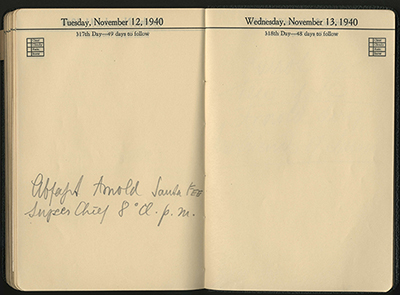 Tuesday, November 12, 1940
317th Day—49 days to follow
Abfahrt Arnold Santa Fee
Super Chief 8° p.m.
Wednesday, November 13, 1940
318th Day—48 days to follow